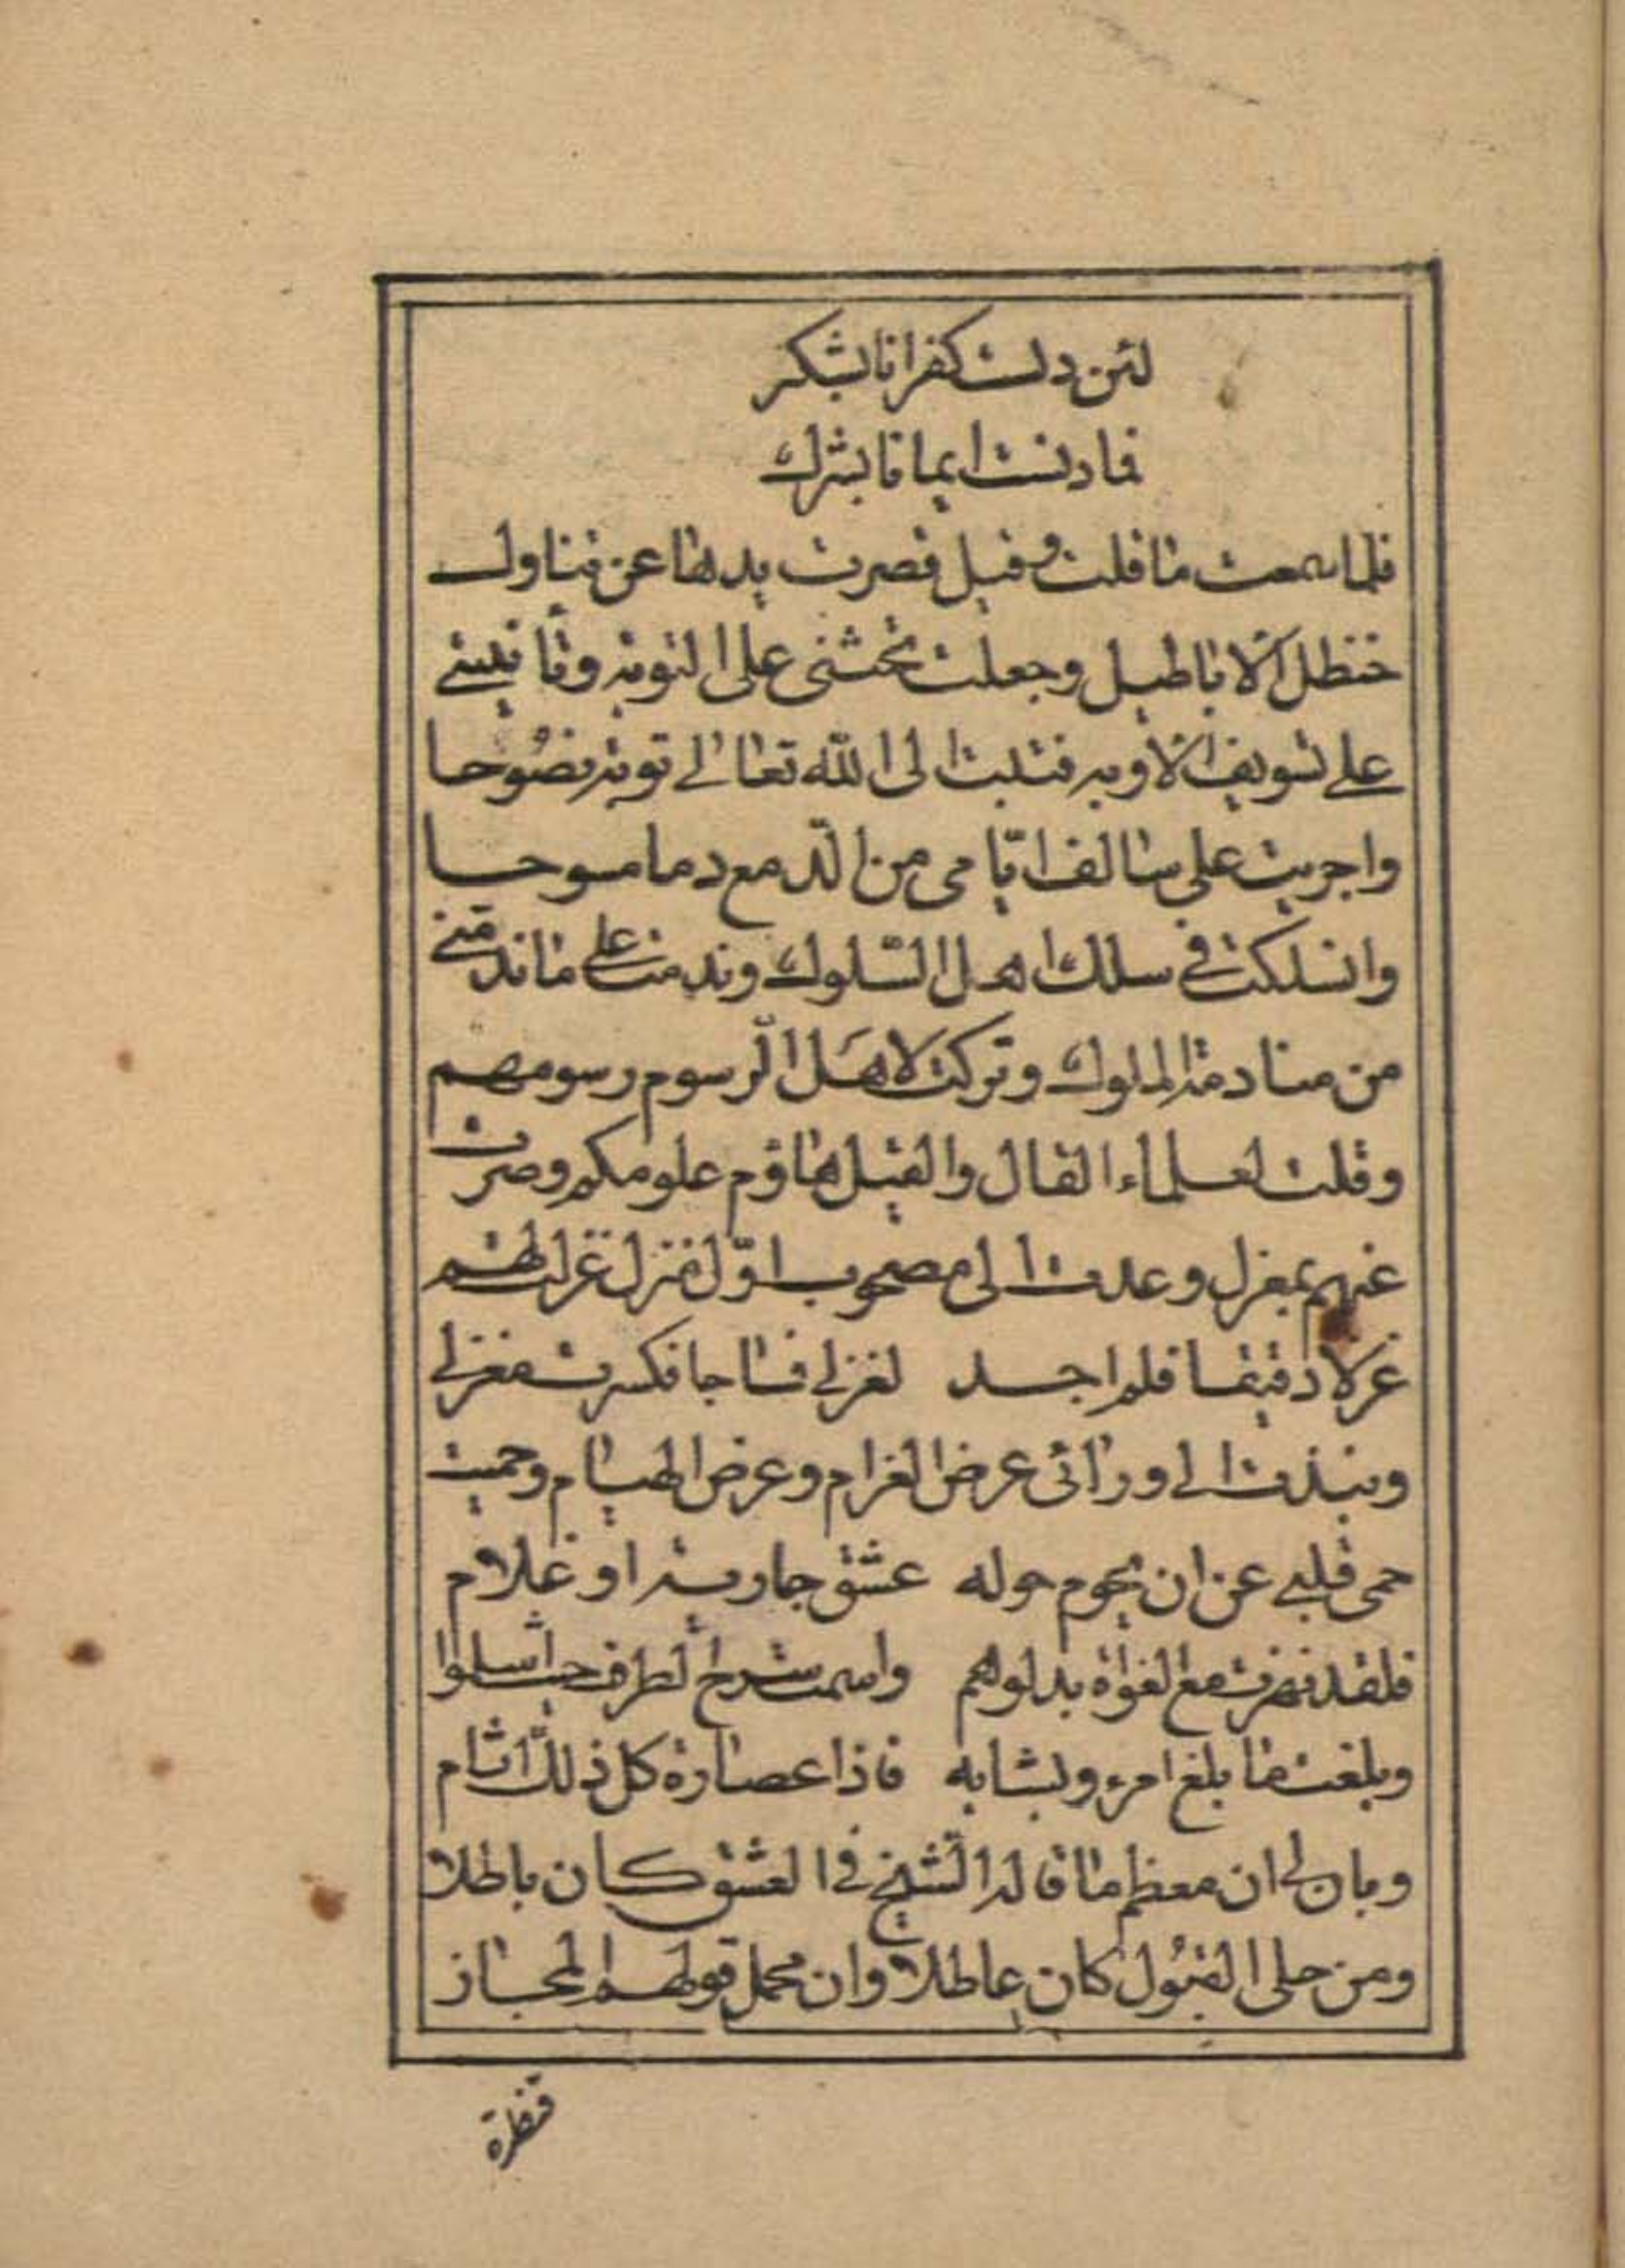 لئن دلت كفرانا بشكر
فما دنست ايمانا بشرك
فلما سمعت ما قلت وقيل قصرت يدها عن تناول
حنظل الاباطيل وجعلت تحثنى على التوبه وتأنبنى
على تسويف الاوبه فتبت الى الله تعالى توبة نصُوحا
واجريت على سالف ايّامى من الدمع دما مسوحا
وانسلكت فى سلك اهل السّلوك وندمت على ما ندمنى
من منادمة الملوك وتركت لاهل الرّسوم رسومهم
وقلت لعلماء القال والقيل هاؤم علومكم وصرت
عنهم بمعزل وعدت الى مصحوب اوّل منزل غزلت لهم
غزلا دقيقا فلم اجد لغزلى نساجا فكسرت مغزلى
ونبذت الى ورائى عرض الغرام وعرض الهيام وحميت
حمى قلبى عن ان يحوم حوله عشق جارية او غلام
فلقد نهزت مع الغواة بدلوهم واسمت سرح الطرف حيث اسلموا
وبلغت ما بلغ امرء وبشابه فاذا عصارة كل ذلك اثام
وبان لى ان معظم ما قاله الشّيخ فى العشق كان باطلا
ومن حلى القبُول كان عاطلا وان محمل قولهم المجاز
قنطرة